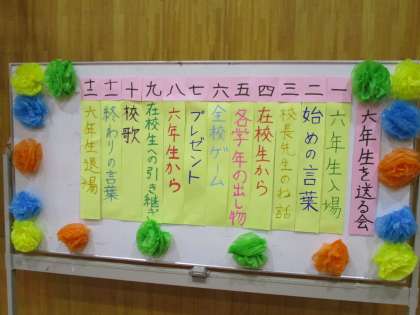 六年生を送る会
一 六年生入場
二 始めの言葉
三 校長先生のお話
四 在校生から
五 各学年の出し物
六 全校ゲーム
七 プレゼント
八 六年生から
九 在校生への引き継ぎ
十 校歌
十一 終わりの言葉
十二 六年生退場